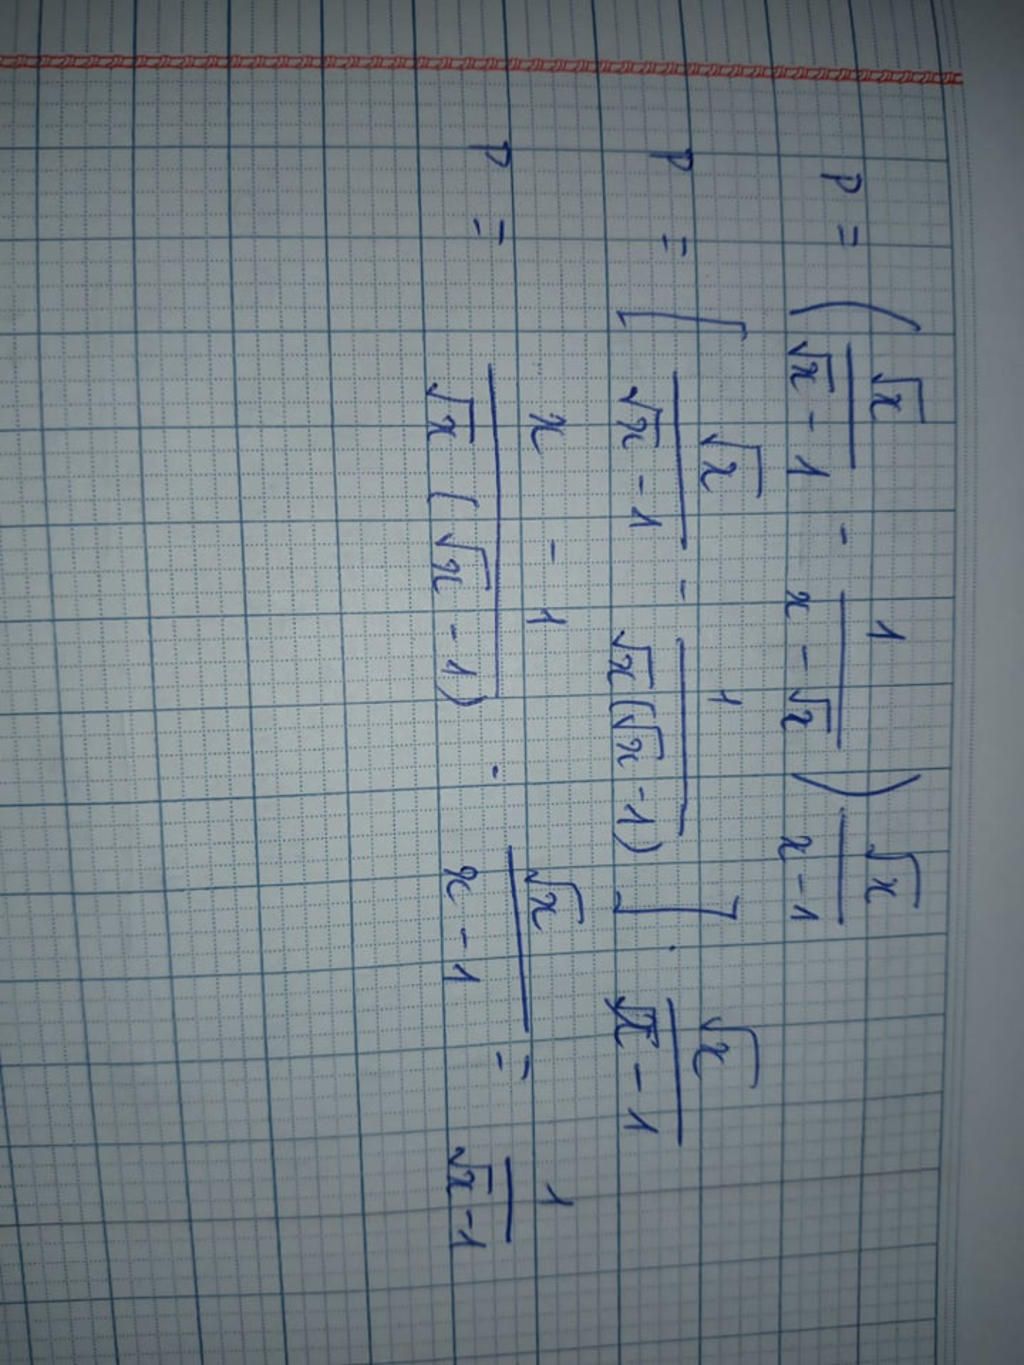 P = ( √x / (√x - 1) - 1 / (x - √x) ) √x / (x - 1)
P = [ √x / (√x - 1) - 1 / (√x(√x - 1)) ] . √x / (x - 1)
P = (x - 1) / (√x (√x - 1)) . √x / (x - 1) = 1 / (√x - 1)